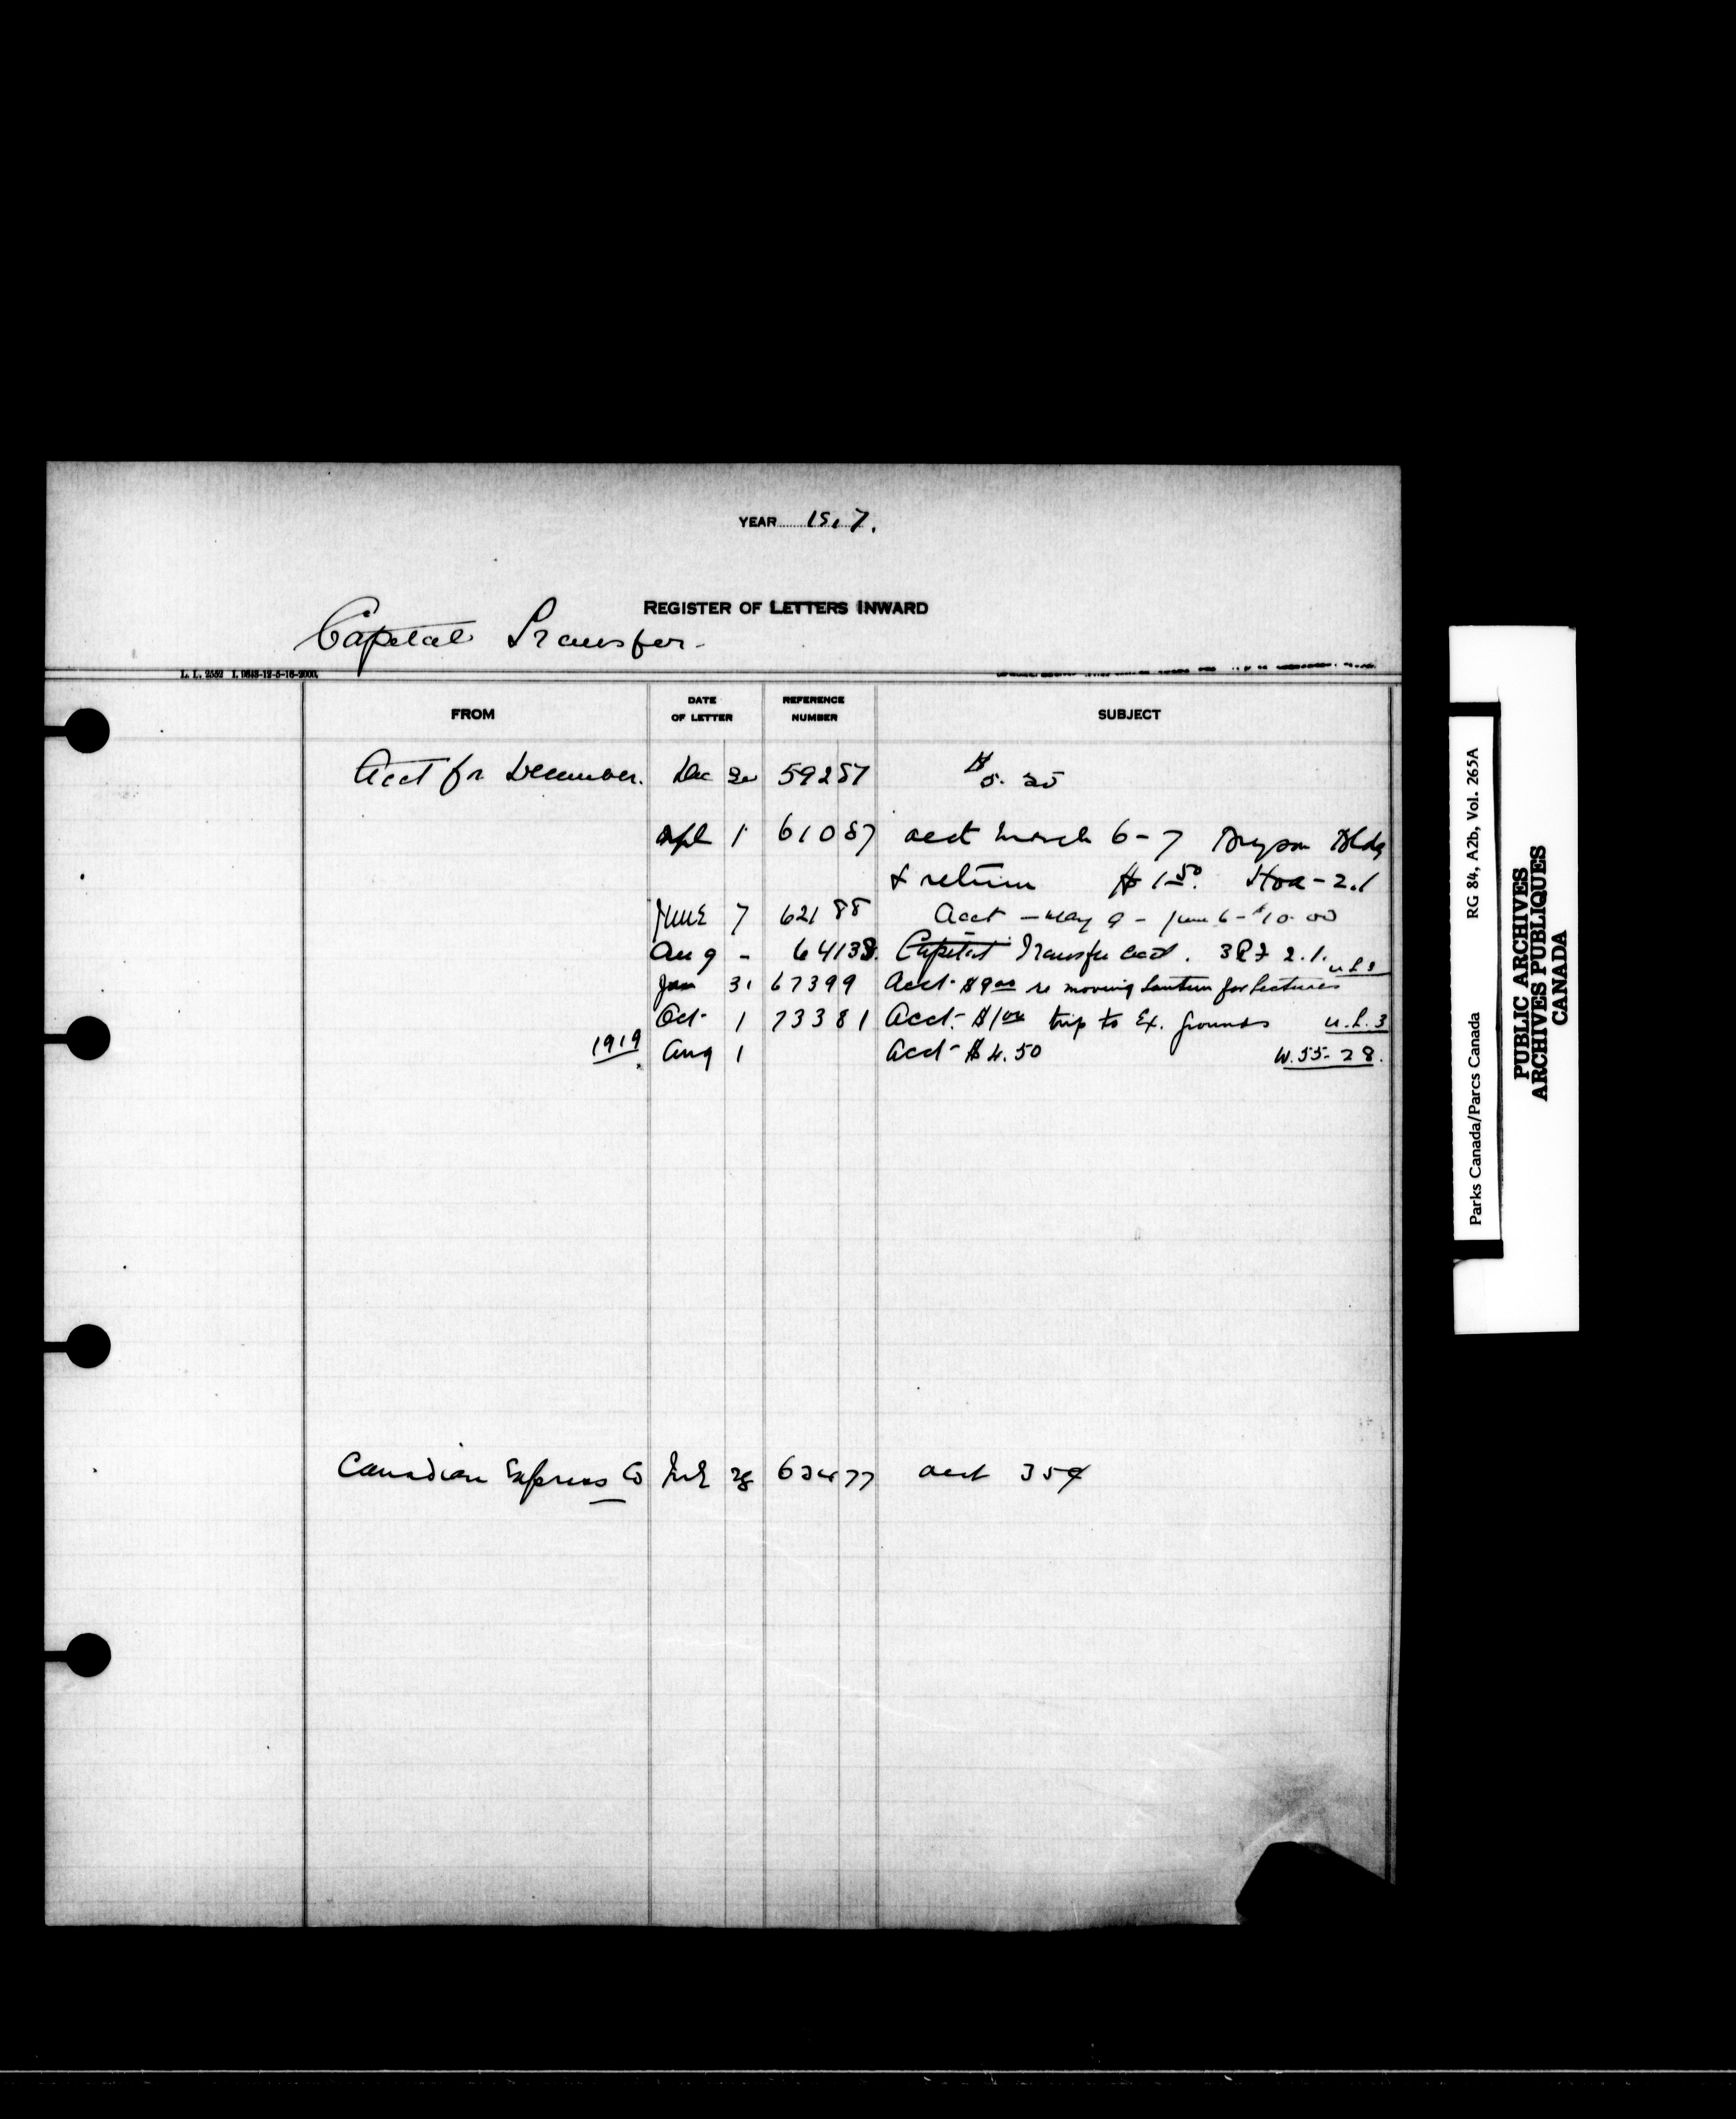 YEAR 1917.
REGISTER OF LETTERS INWARD
Capital Transfer.
L. L. 2552 I. 9643-12-5-16-2000.
FROM DATE OF LETTER REFERENCE NUMBER SUBJECT
Acct for December. Dec 59257 $5.25
Apl 1 61087 acct March 6-7 Bldg
& return $1.50. Hoa-2.1
June 7 62188 Acct - May 9 - June 6 - $10.00
Aug - 64138. Capital Transfer acct. 2.1.
U.L.3
Jan 31 67399 Acct- $9.00 re moving Lantern for lectures
Oct- 1 73381 Acct- $1.00 trip to Ex. grounds U.L.3
1919 Aug 1 Acct- $4.50 W.55-28.
Canadian Express Co 28 62477 acct 35¢
Parks Canada/Parcs Canada RG 84, A2b, Vol. 265A
PUBLIC ARCHIVES
ARCHIVES PUBLIQUES
CANADA